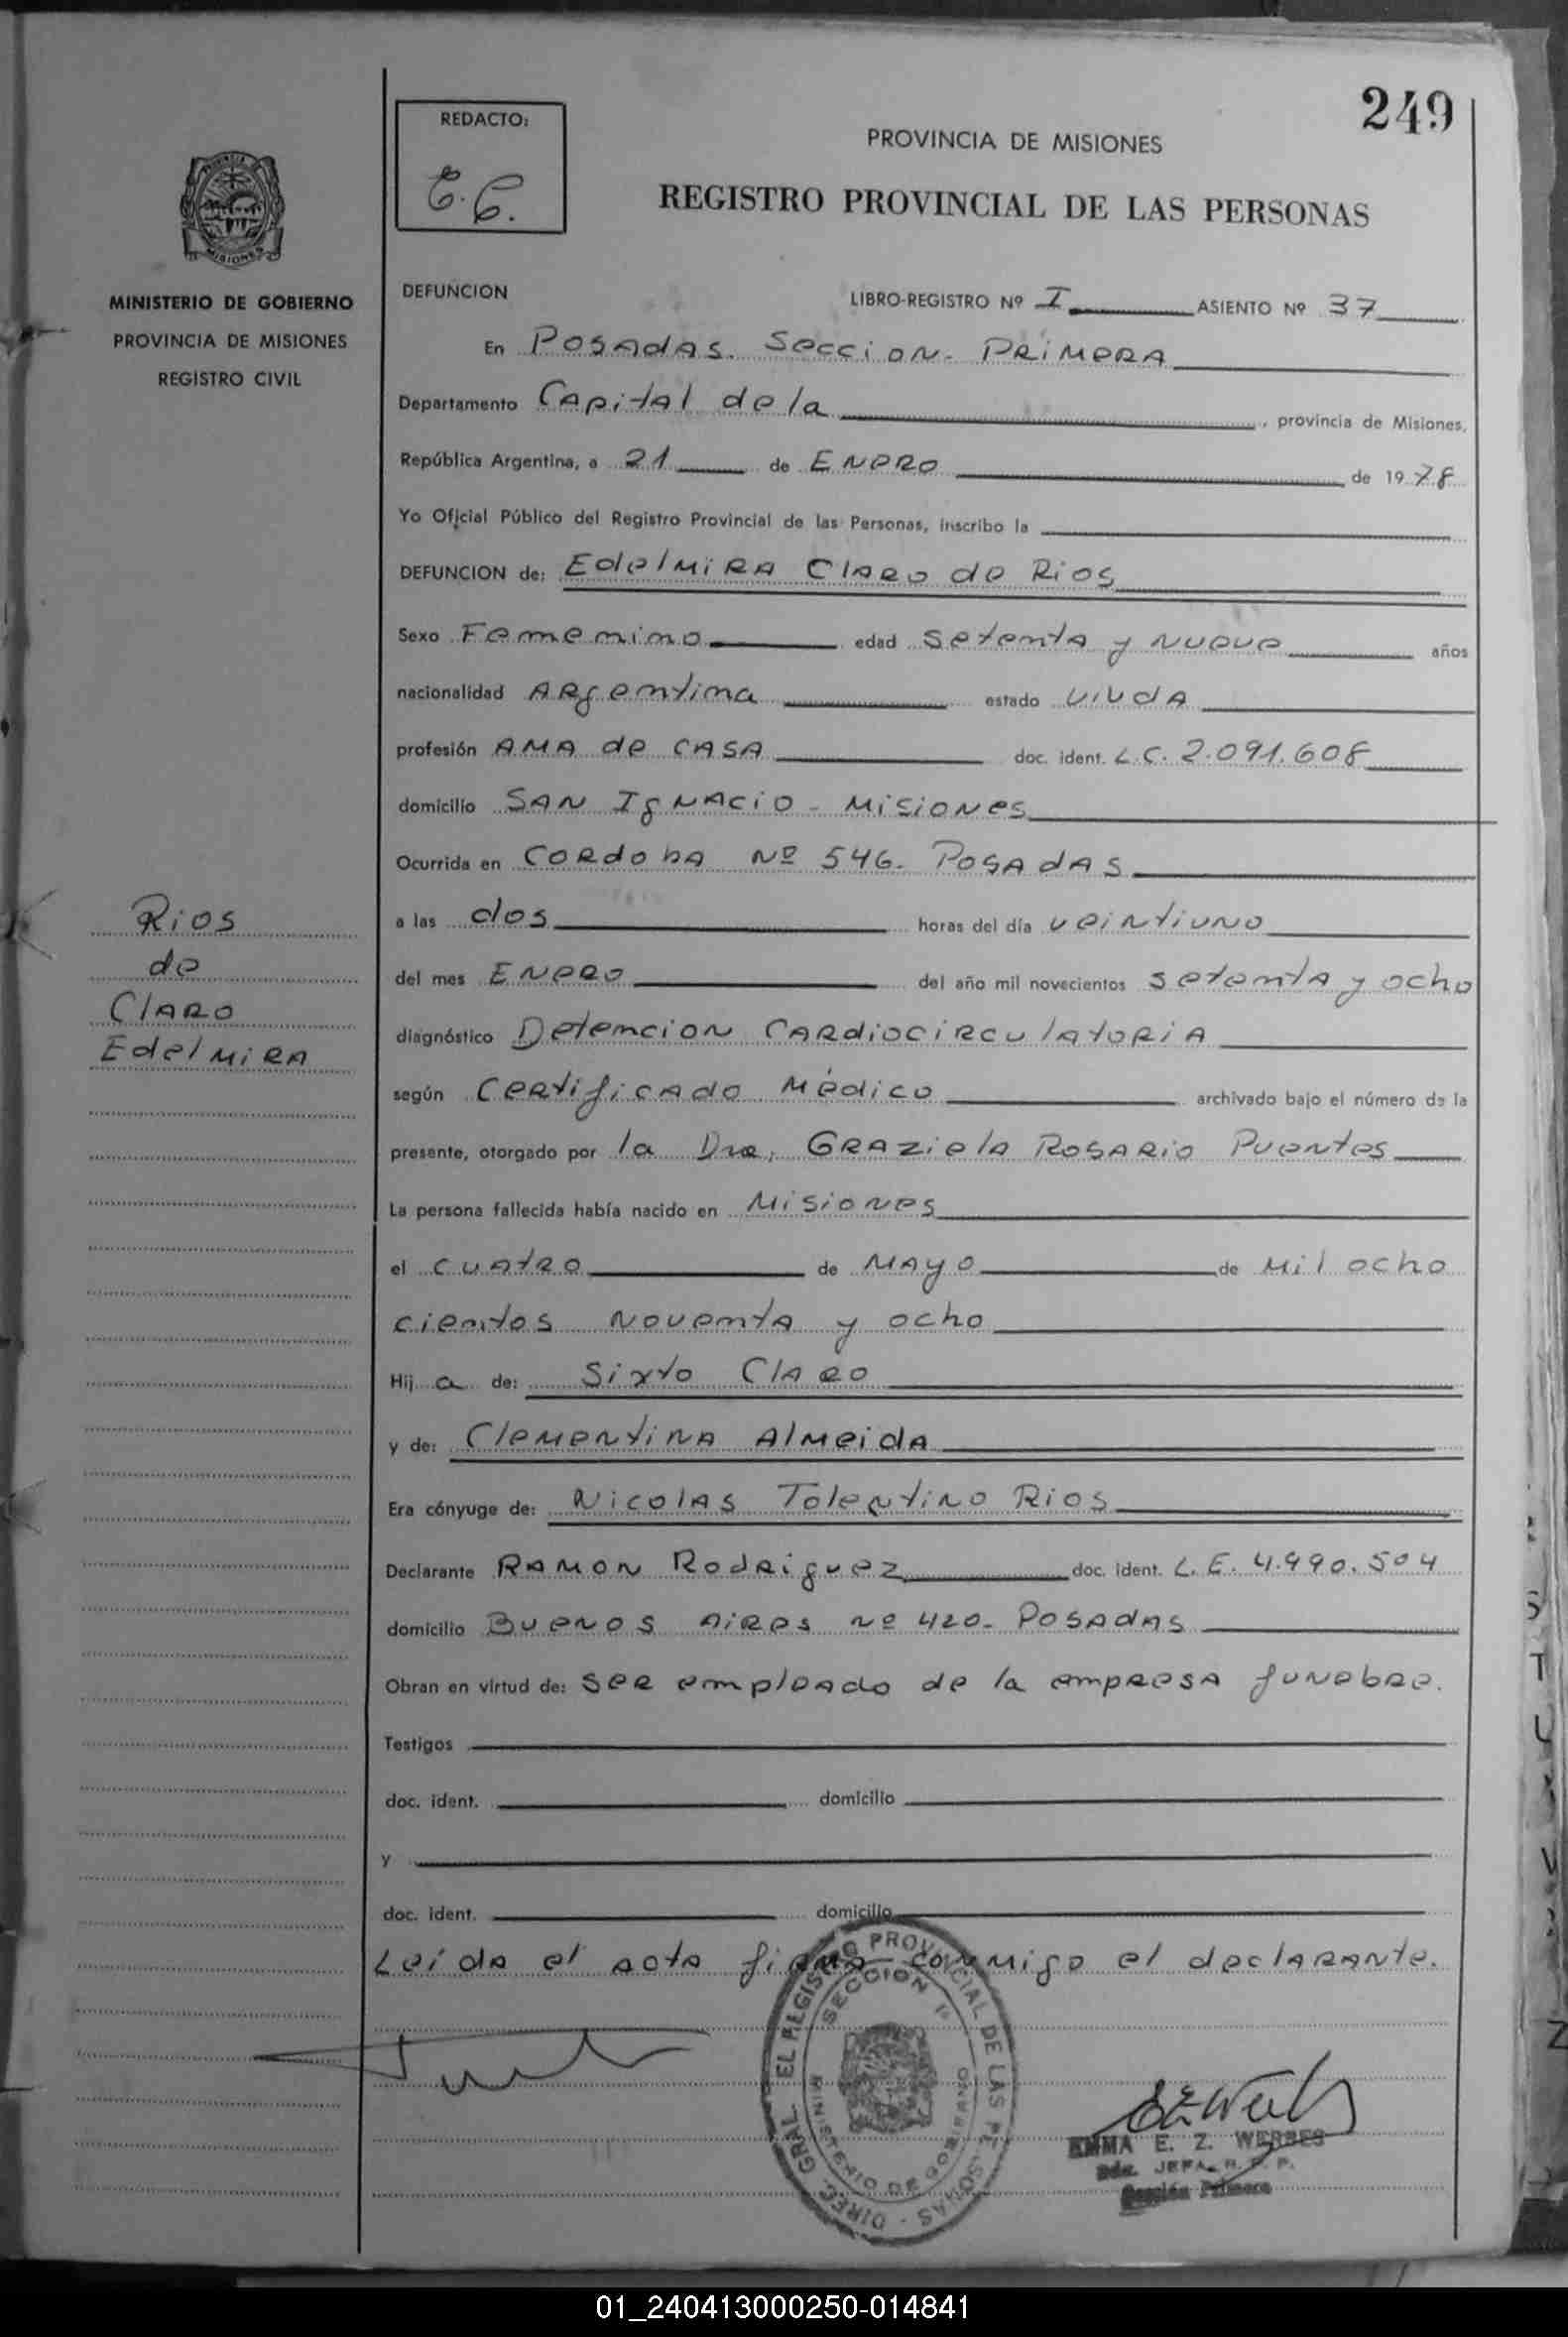 249
REDACTO:
PROVINCIA DE MISIONES
REGISTRO PROVINCIAL DE LAS PERSONAS
MISIONES
MINISTERIO DE GOBIERNO
PROVINCIA DE MISIONES
REGISTRO CIVIL
DEFUNCION LIBRO-REGISTRO Nº I ASIENTO Nº 37
En Posadas. Seccion. Primera
Departamento Capital de la provincia de Misiones,
República Argentina, a 21 de Enero de 1978
Yo Oficial Público del Registro Provincial de las Personas, inscribo la
DEFUNCION de: Edelmira Claro de Rios
Sexo Femenino edad setenta y nueve años
nacionalidad Argentina estado viuda
profesión Ama de casa doc. ident. L.C. 2.091.608
domicilio San Ignacio - Misiones
Ocurrida en Cordoba Nº 546. Posadas
a las dos horas del día veintiuno
del mes Enero del año mil novecientos setenta y ocho
diagnóstico Detencion cardiocirculatoria
según Certificado Médico archivado bajo el número de la
presente, otorgado por la Dra. Graziela Rosario Puentes
La persona fallecida había nacido en Misiones
el cuatro de Mayo de mil ocho
cientos noventa y ocho
Hija de: Sixto Claro
y de: Clementina Almeida
Era cónyuge de: Nicolas Tolentino Rios
Declarante Ramon Rodriguez doc. ident. L.E. 4.990.504
domicilio Buenos Aires Nº 420. Posadas
Obran en virtud de: ser empleado de la empresa funebre.
Testigos
doc. ident. domicilio
y
doc. ident. domicilio
Leída el acta firma conmigo el declarante.
Rios
de
Claro
Edelmira
DIREC. GRAL. EL REGISTRO PROVINCIAL DE LAS PERSONAS
SECCION 1ª
MINISTERIO DE GOBIERNO
EMMA E. Z. WERBES
JEFA R. P. P.
Sección Primera
01_240413000250-014841